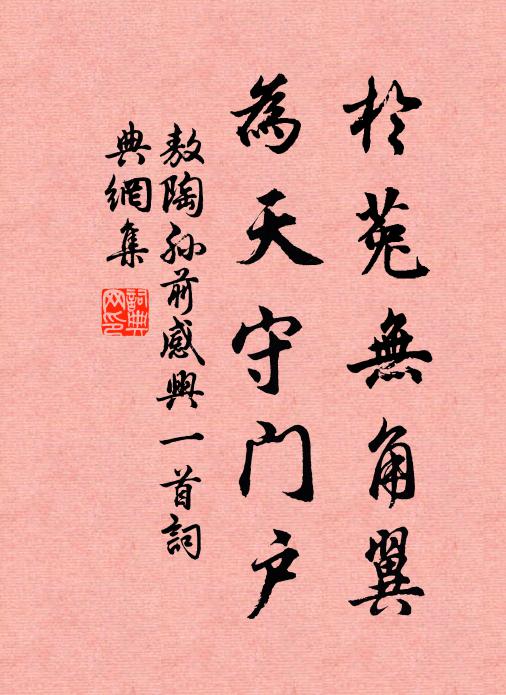 於菟無角翼
為天守門户
敖陶孙前感興一首詞
典網集
詞典
网印